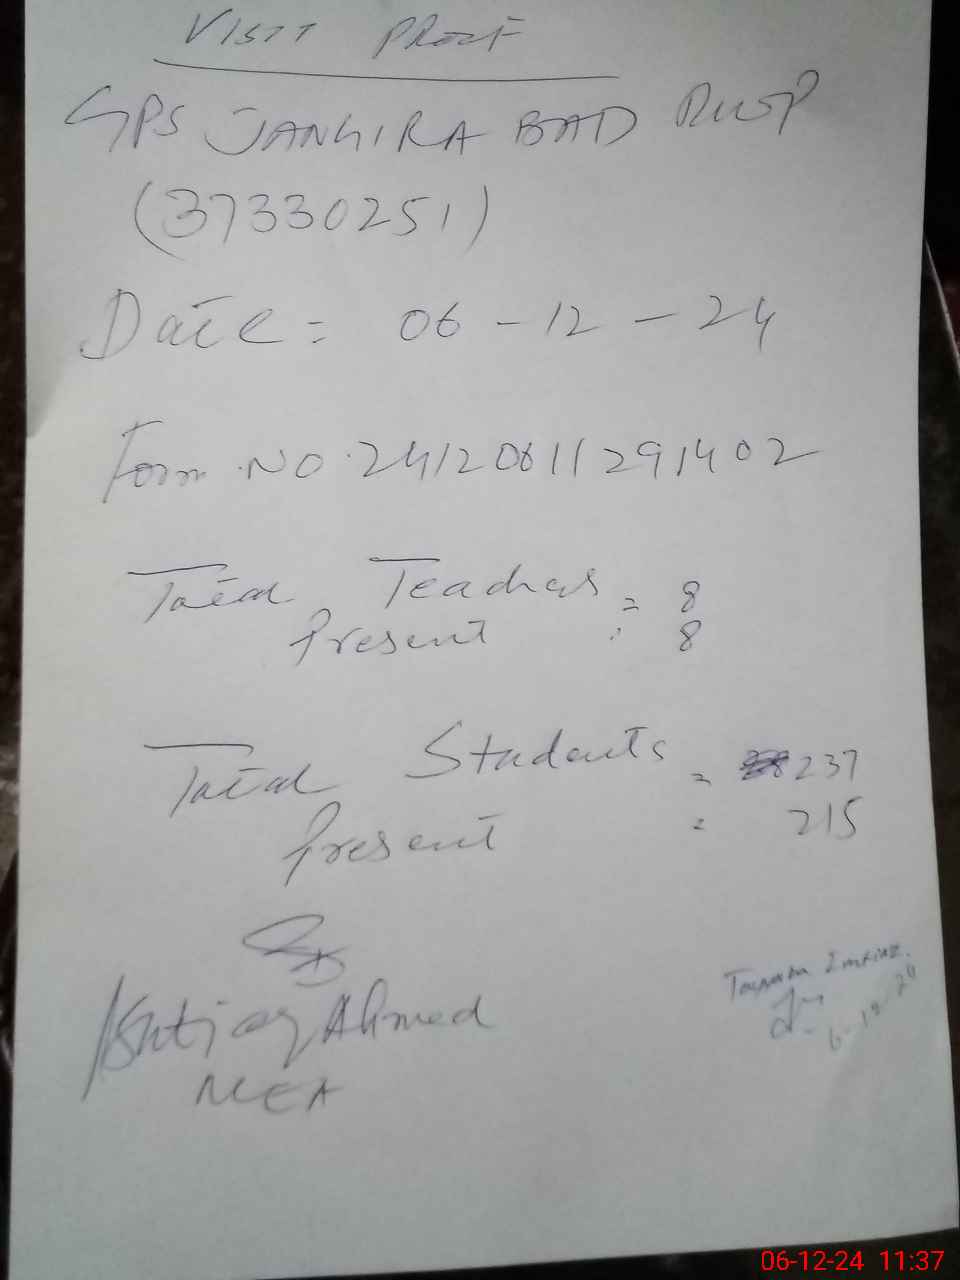 VISIT PROOF
GPS JANGIRA BAD RWP
(37330251)
Date = 06-12-24
Form NO. 24120611291402
Total Teachers = 8
Present : 8
Total Students = 237
Present = 215
Ishtiaq Ahmed
MEA
Imtiaz.
6-12-24
06-12-24 11:37